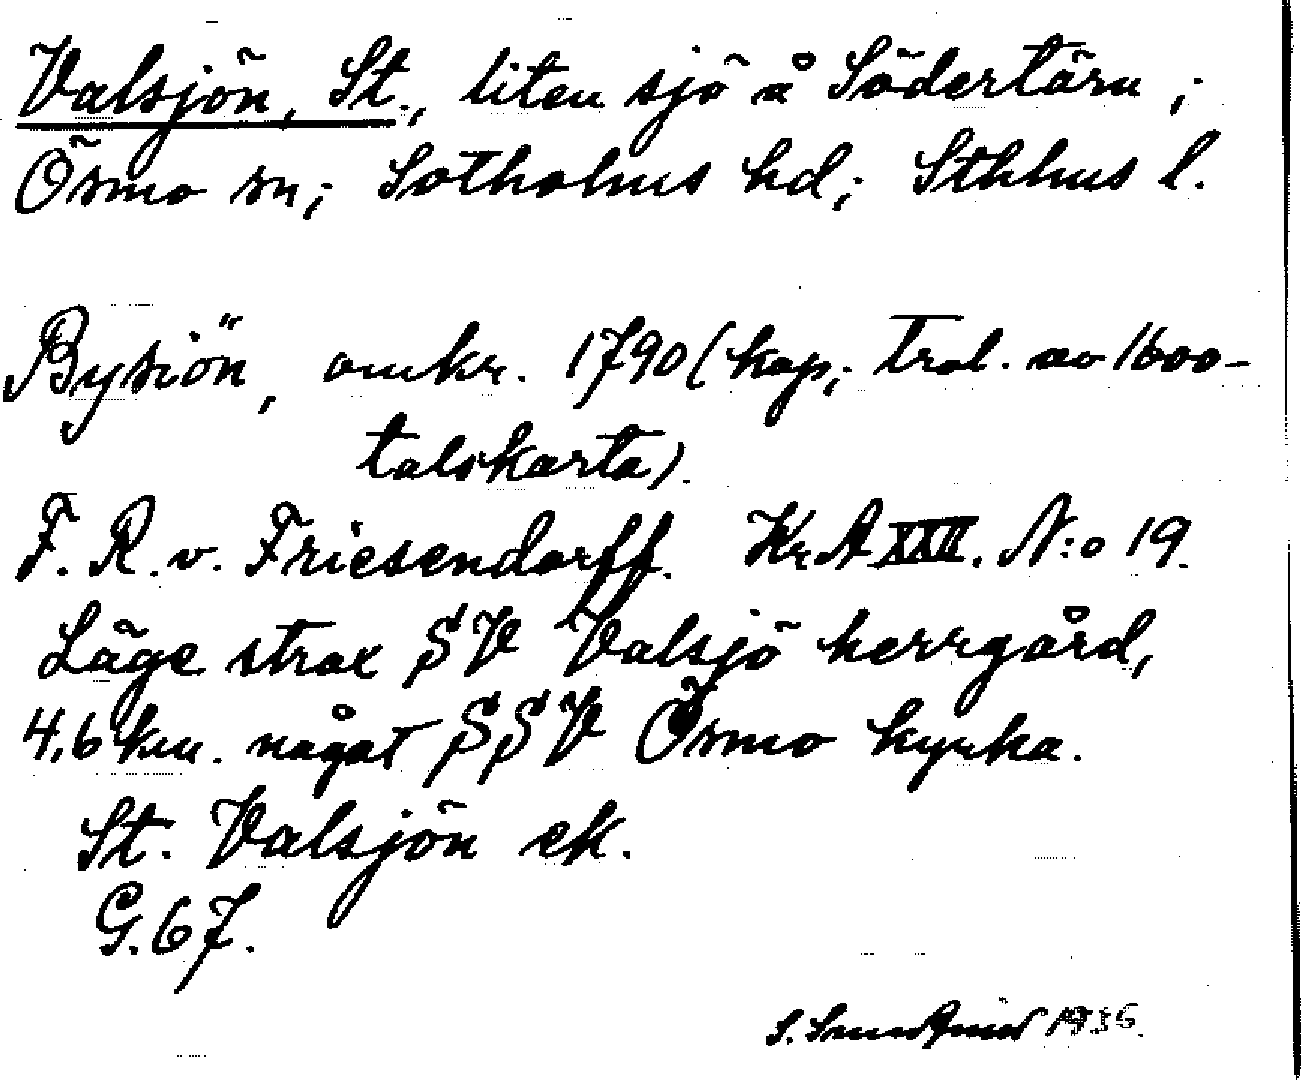 Valsjön, St., liten sjö å Södertörn;
Ösmo sn; Sotholms hd; Sthlms l.
Bysiön, omkr. 1790 (kop; trol. av 1600-
talskarta).
F. R. v. Friesendorff. Kr.A XXII. N:o 19.
Läge strax SV Valsjö herrgård,
4,6 km. något SSV Ösmo kyrka.
St. Valsjön ek.
G. 67.
S. 1936.